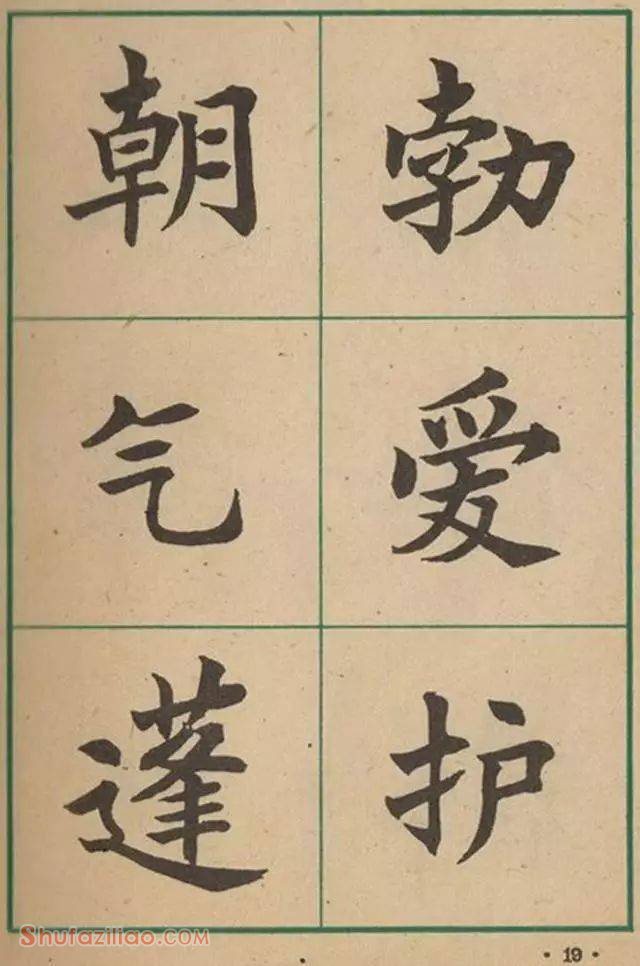 朝气蓬
勃爱护
Shufaziliao.com
· 19 ·